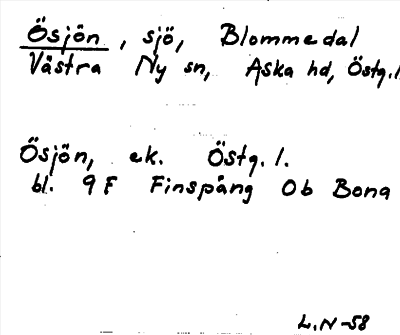 Ösjön, sjö, Blommedal
Västra Ny sn, Aska hd, Östg.l.
Ösjön, ek. Östg.l.
bl. 9F Finspång 0b Bona
L.N-58